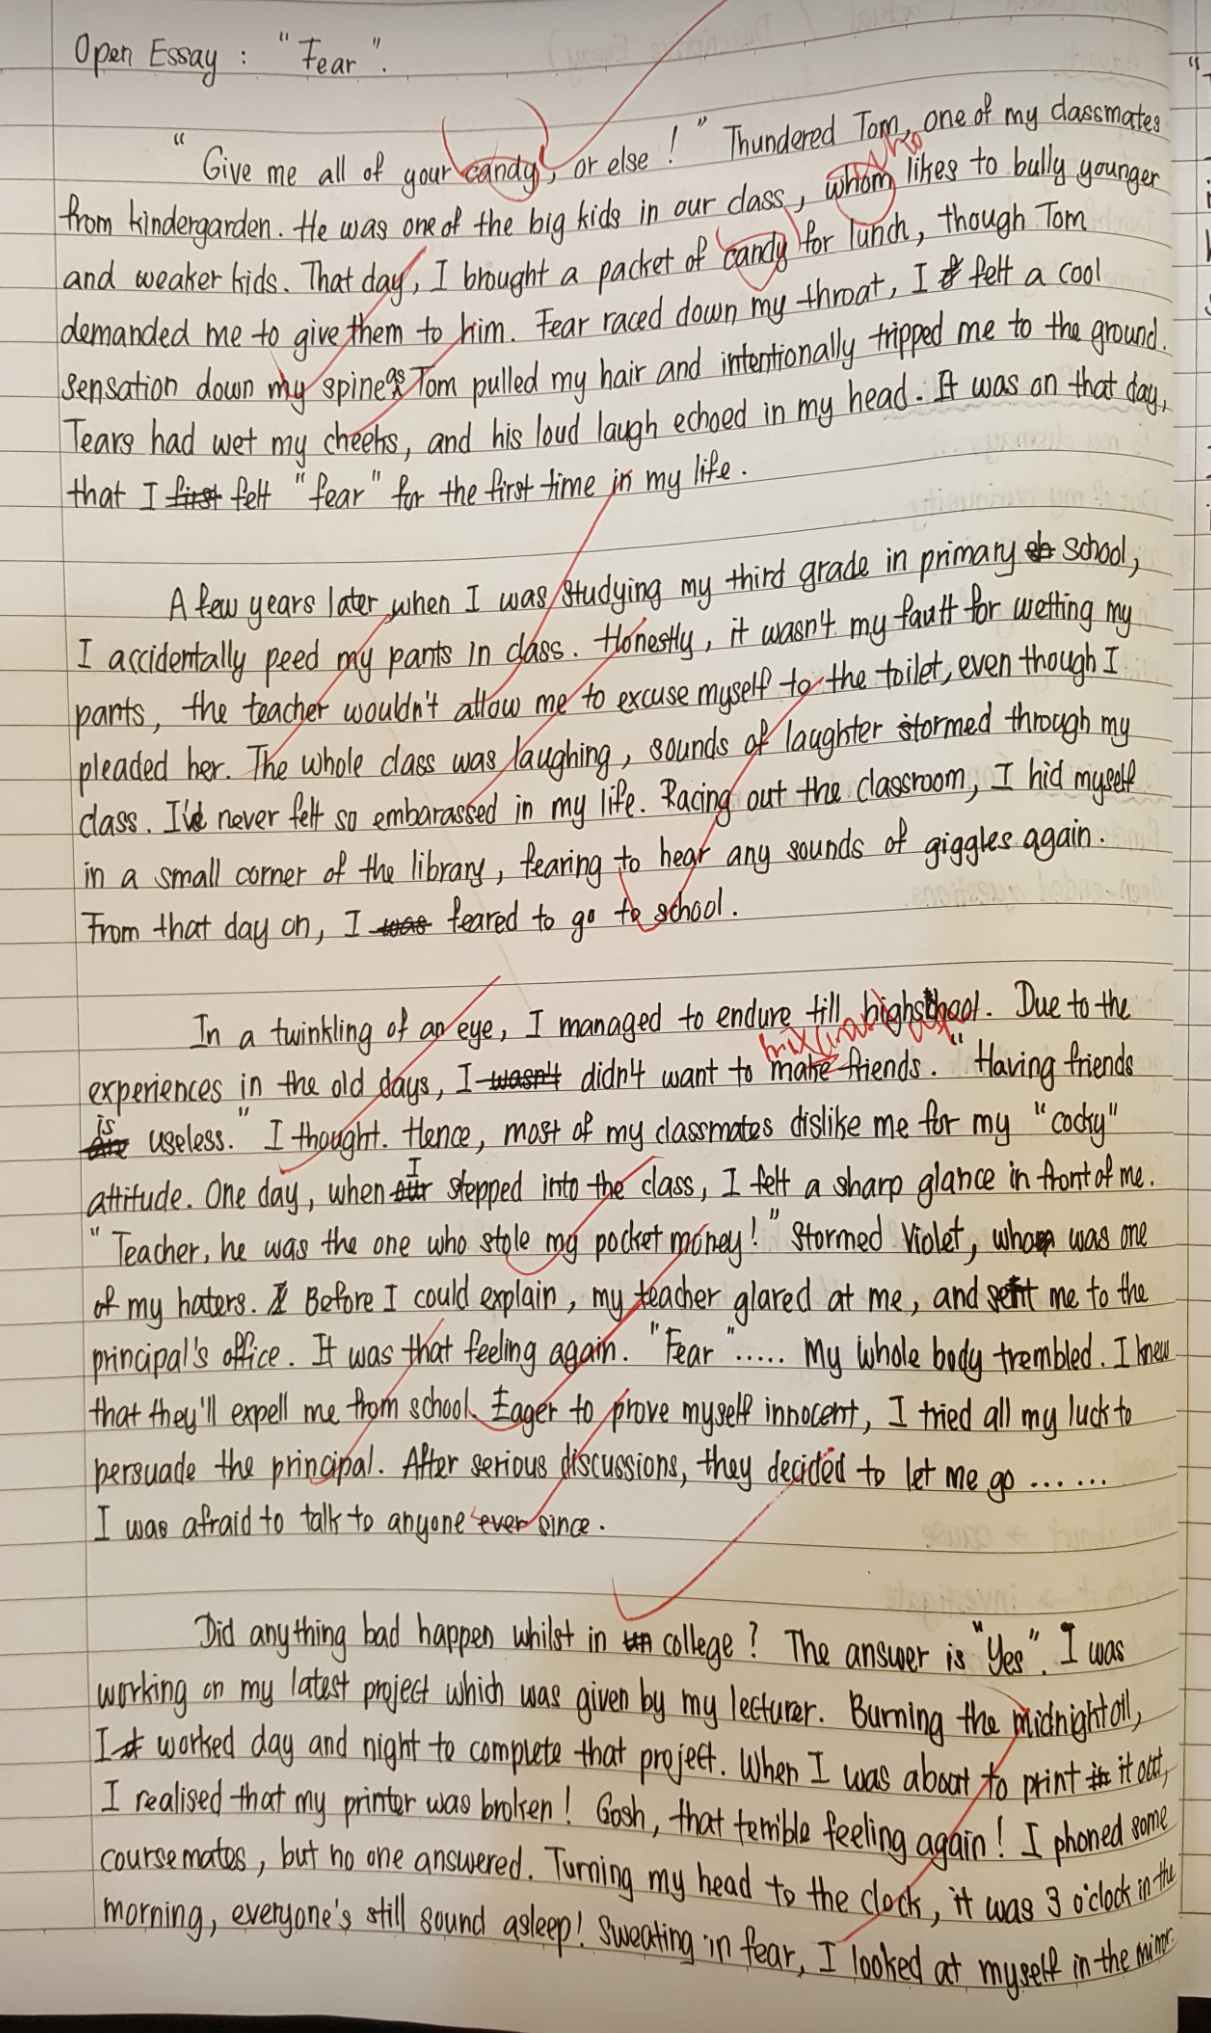 Open Essay : "Fear".
"Give me all of your candy, or else!" Thundered Tom, one of my classmates
who
from kindergarden. He was one of the big kids in our class, whom likes to bully younger
and weaker kids. That day, I brought a packet of candy for lunch, though Tom
demanded me to give them to him. Fear raced down my throat, I felt a cool
sensation down my spine as Tom pulled my hair and intentionally tripped me to the ground.
Tears had wet my cheeks, and his loud laugh echoed in my head. It was on that day,
that I first felt "fear" for the first time in my life.
A few years later, when I was studying my third grade in primary school,
I accidentally peed my pants in class. Honestly, it wasn't my fault for wetting my
pants, the teacher wouldn't allow me to excuse myself to the toilet, even though I
pleaded her. The whole class was laughing, sounds of laughter stormed through my
class. I've never felt so embarassed in my life. Racing out the classroom, I hid myself
in a small corner of the library, fearing to hear any sounds of giggles again.
From that day on, I was feared to go to school.
In a twinkling of an eye, I managed to endure till highschool. Due to the
experiences in the old days, I wasn't didn't want to make friends. "Having friends
is
are useless." I thought. Hence, most of my classmates dislike me for my "cocky"
attitude. One day, when I stepped into the class, I felt a sharp glance in front of me.
"Teacher, he was the one who stole my pocket money!" Stormed Violet, whom was one
of my haters. Before I could explain, my teacher glared at me, and sent me to the
principal's office. It was that feeling again. "Fear"..... My whole body trembled. I knew
that they'll expell me from school. Eager to prove myself innocent, I tried all my luck to
persuade the principal. After serious discussions, they decided to let me go ......
I was afraid to talk to anyone ever since.
Did anything bad happen whilst in college? The answer is "Yes". I was
working on my latest project which was given by my lecturer. Burning the midnight oil,
I worked day and night to complete that project. When I was about to print it out,
I realised that my printer was broken! Gosh, that terrible feeling again! I phoned some
coursemates, but no one answered. Turning my head to the clock, it was 3 o'clock in the
morning, everyone's still sound asleep! Sweating in fear, I looked at myself in the mirror